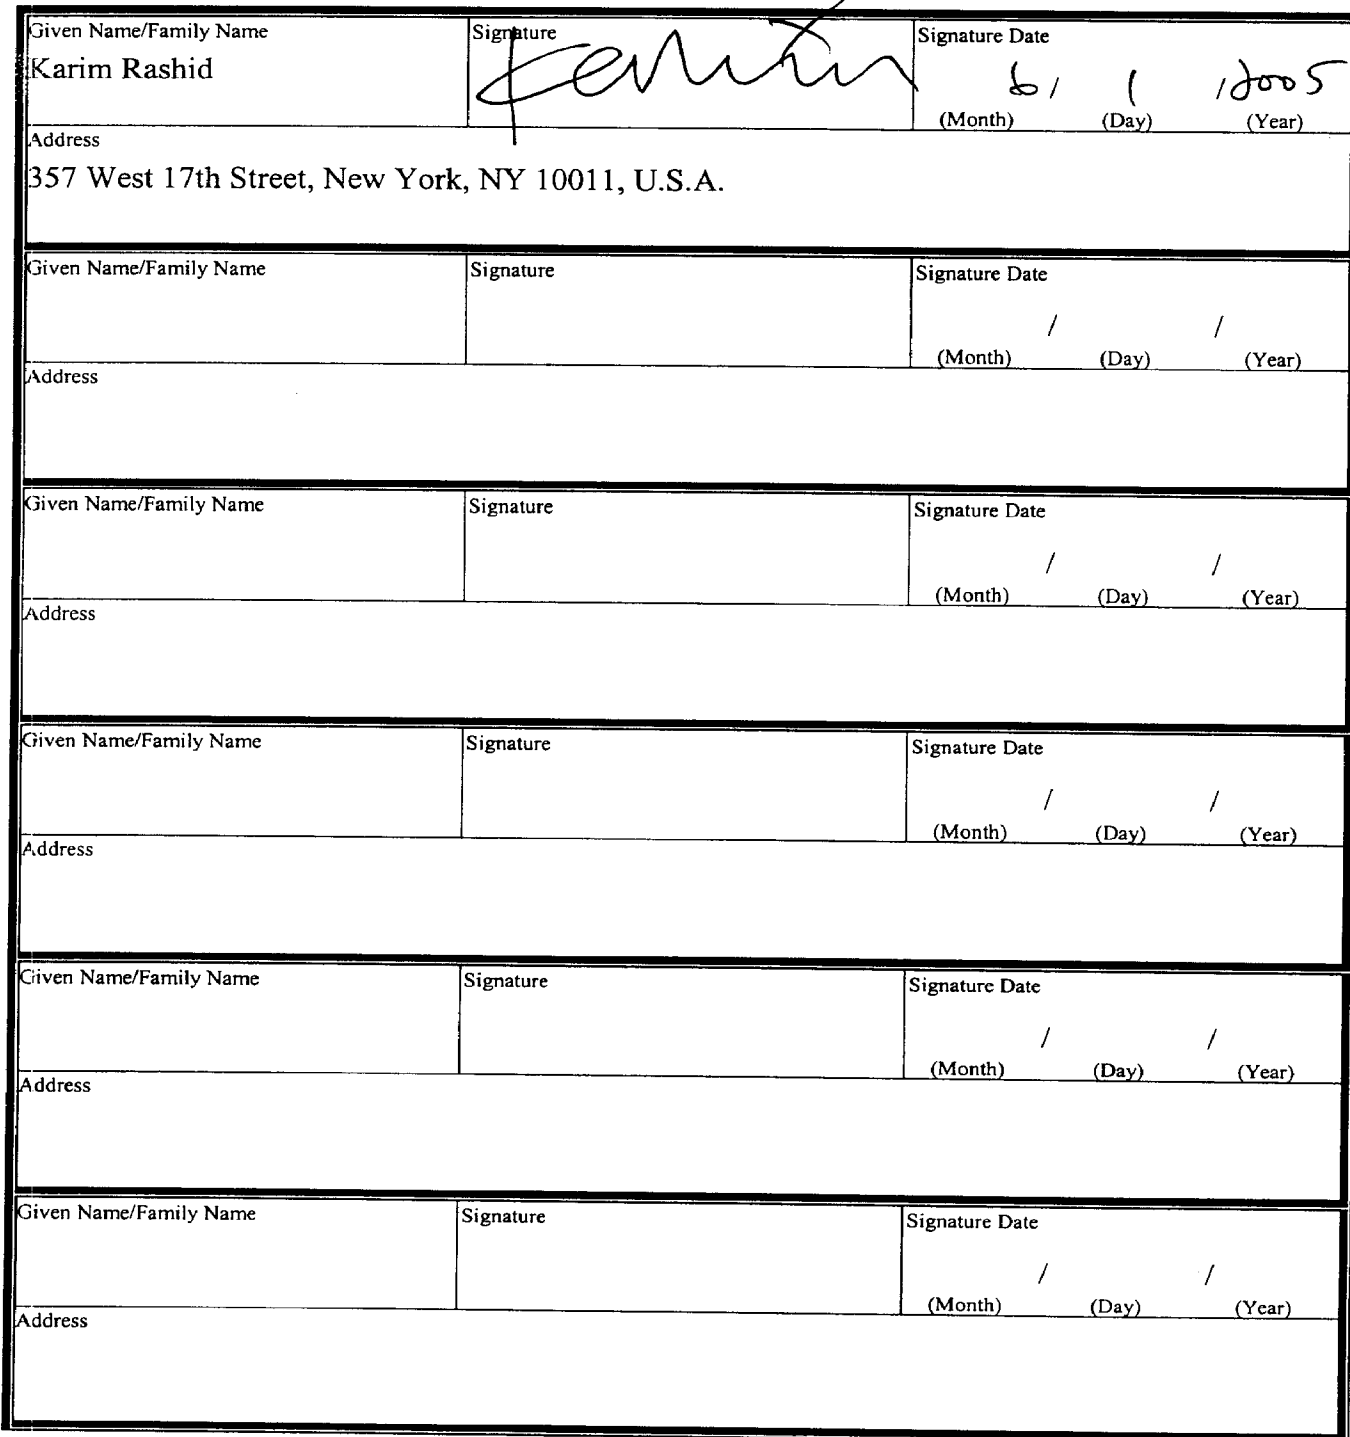 Given Name/Family Name Signature Signature Date
Karim Rashid
6 / 1 / 2005
(Month) (Day) (Year)
Address
357 West 17th Street, New York, NY 10011, U.S.A.
Given Name/Family Name Signature Signature Date
/ /
(Month) (Day) (Year)
Address
Given Name/Family Name Signature Signature Date
/ /
(Month) (Day) (Year)
Address
Given Name/Family Name Signature Signature Date
/ /
(Month) (Day) (Year)
Address
Given Name/Family Name Signature Signature Date
/ /
(Month) (Day) (Year)
Address
Given Name/Family Name Signature Signature Date
/ /
(Month) (Day) (Year)
Address